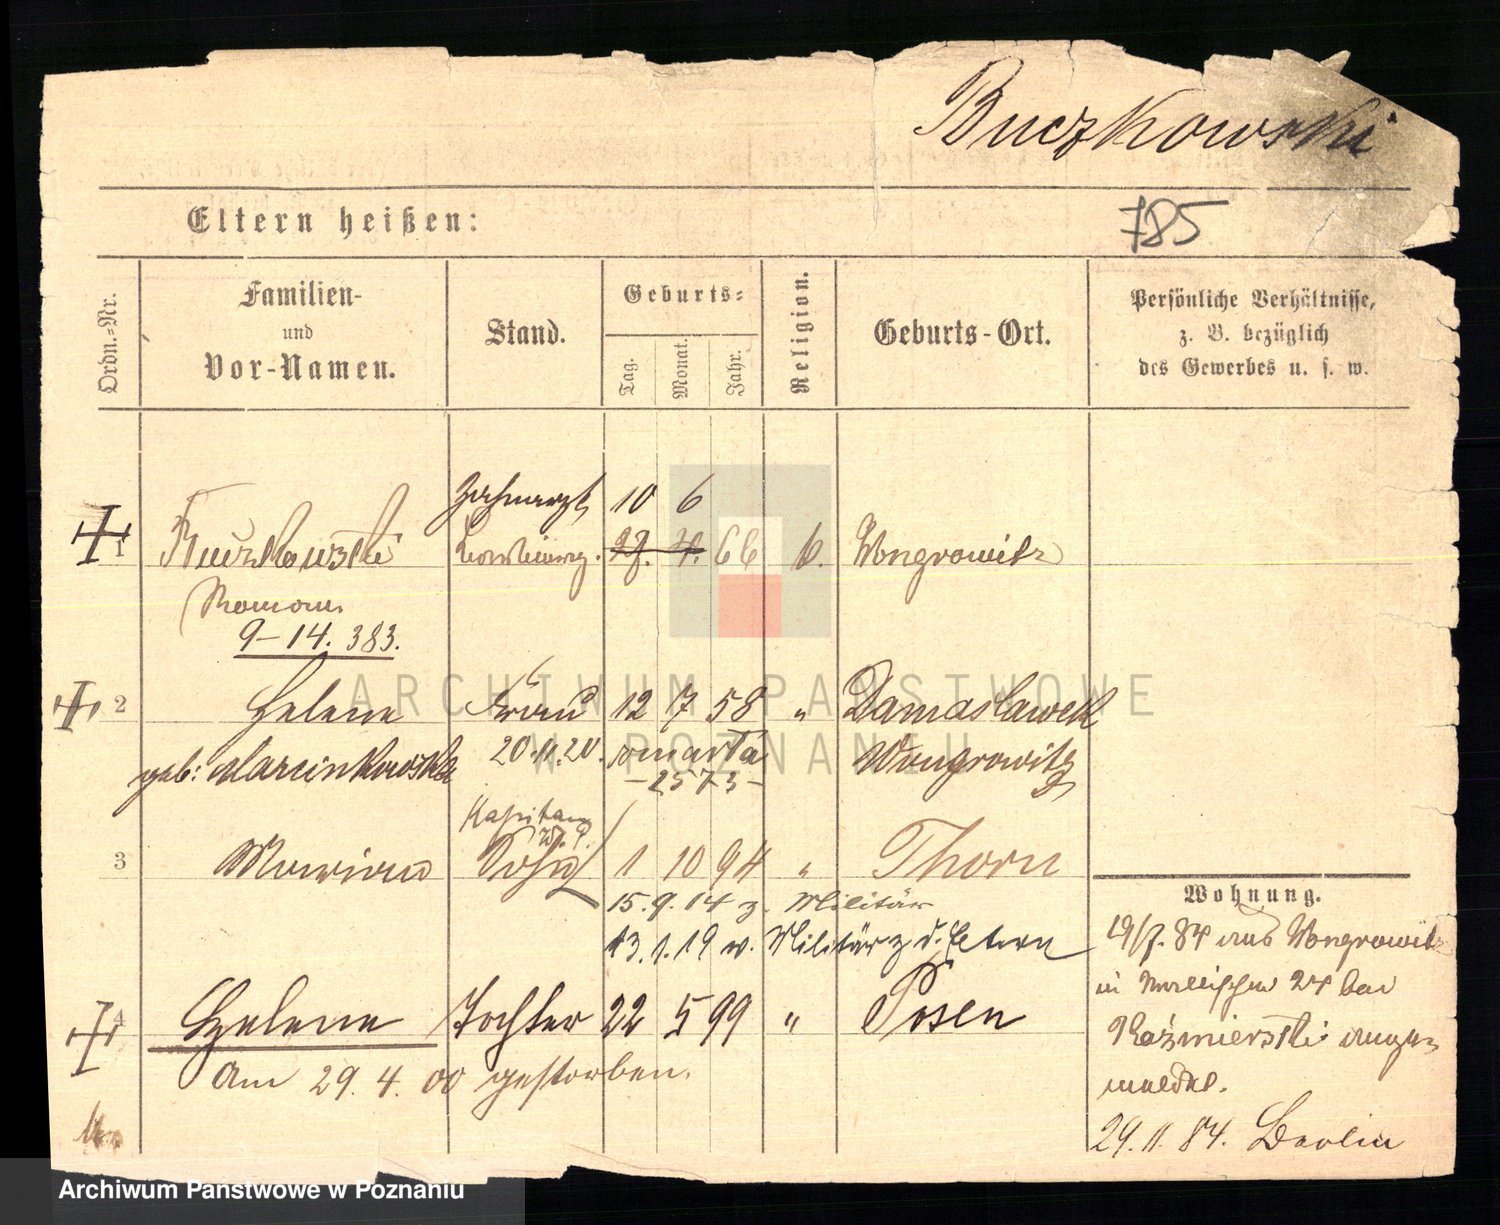 Buczkowski
Eltern heißen:
785
Ordn.-Nr.
Familien-
und
Vor-Namen.
Stand.
Geburts-
Tag.
Monat.
Jahr.
Religion.
Geburts-Ort.
Persönliche Verhältnisse,
z. B. bezüglich
des Gewerbes u. s. w.
Zahnarzt 10 6
1 Buczkowski 66 k. Wongrowitz
Roman
9-14. 383.
2 Helene Frau 12 7 58 " Damaslawek
geb: Marcinkowska 20.11.20. Wongrowitz
- 2573 -
Kapitan
W. P.
3 Marian Sohn 1 10 94 " Thorn
15.9.14 z. Militär
13.1.19 v. Militär z. d. Eltern
4 Helene Tochter 22 5 99 " Posen
Am 29.4.00 gestorben.
Wohnung.
19/7. 84 aus Wongrowitz
in Wallischei 24 bei
Kaźmierski ange-
meldet.
29.11.84. Berlin
ARCHIWUM PAŃSTWOWE
W POZNANIU
Archiwum Państwowe w Poznaniu